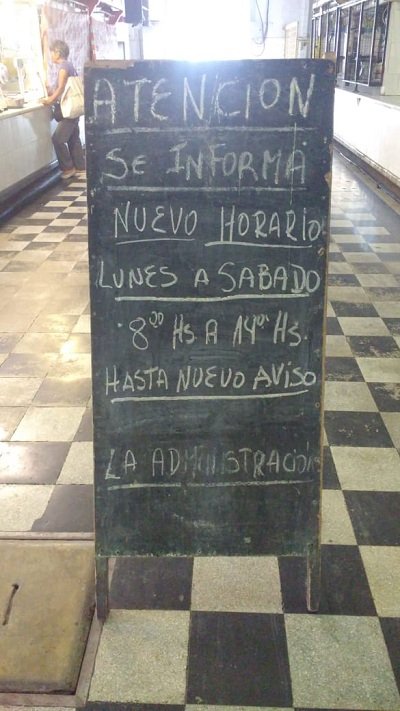 ATENCION
Se INFORMA
NUEVO HORARIO
LUNES A SABADO
8⁰⁰ Hs A 14⁰⁰ Hs.
HASTA NUEVO AVISO
LA ADMINISTRACION